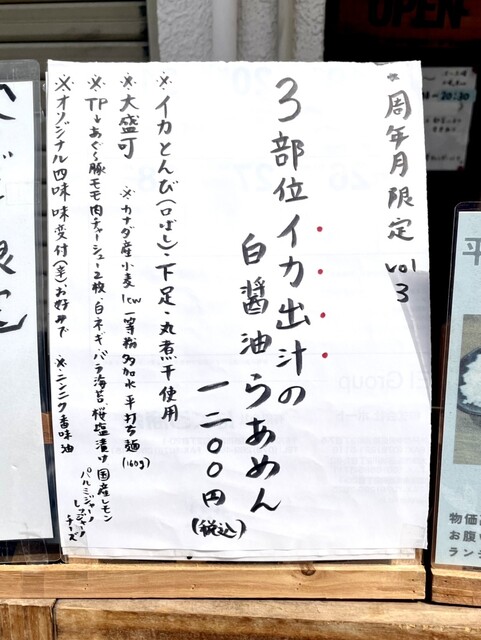 周年月限定 vol 3
3部位イカ出汁の
白醤油らあめん
一二〇〇円
(税込)
※イカとんび(口ばし)・下足・丸煮干使用
※大盛可
※カナダ産小麦1cw一等粉多加水平打ち麺(160g)
※TP→あぐー豚モモ肉チャーシュー2枚、白ネギ、バラ海苔、桜塩漬け 国産レモン
パルミジャーノレッジャーノチーズ
※オリジナル四味味変付(辛)、お好みで
※ニンニク香味油
限定
OPEN
20:30
平
物価
お腹
ランチ